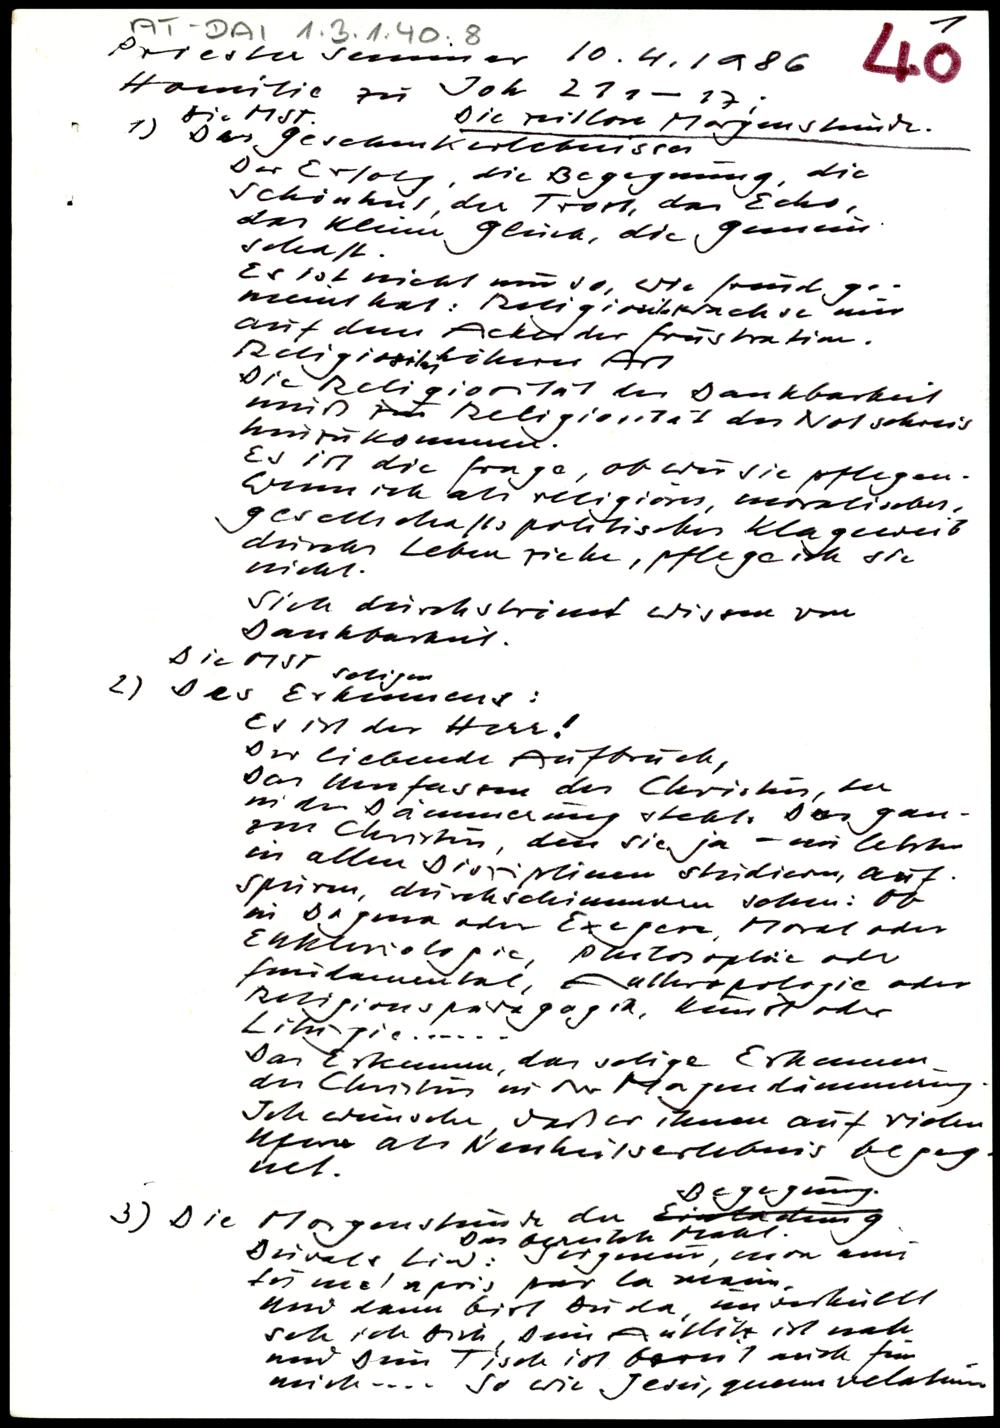 AT-DAI 1.3.1.40.8
1
40
Priesterseminar 10.4.1986
Homilie zu Joh 21 1-17;
Die MST. Die zeitlose Morgenstunde.
1) Des Geschenkerlebnisses
Der Erfolg, die Begegnung, die
Schönheit, der Trost, das Echo,
das kleine Glück, die Gemein-
schaft.
Es ist nicht nur so, wie Freud ge-
meint hat: Religiosität wachse nur
auf dem Acker der Frustration.
Religiosität höherer Art
Die Religiosität der Dankbarkeit
muß zur Religiosität des Notschreis
hinzukommen.
Es ist die Frage, ob wir sie pflegen.
Wenn ich als religiöses, moralisches,
gesellschaftspolitisches Klageweib
durchs Leben ziehe, pflege ich sie
nicht.
Sich durchströmt wissen von
Dankbarkeit.
Die MST
seligen
2) Des Erkennens:
Es ist der Herr!
Der liebende Aufbruch,
Das Umfassen des Christus, der
in der Dämmerung steht. Den gan-
zen Christus, den Sie ja - im letzten
in allen Disziplinen studieren, auf-
spüren, durchscheinen sehen: Ob
in Dogma oder Exegese, Moral oder
Ekklesiologie, Philosophie oder
Fundamental, Anthropologie oder
Religionspädagogik, Kunst oder
Liturgie......
Das Erkennen, das selige Erkennen
des Christus in der Morgendämmerung.
Ich wünsche, daß er Ihnen auf vielen
Ufern als Neuheitserlebnis begeg-
net.
Begegnung.
3) Die Morgenstunde der Einladung
Das bereitete Mahl.
Duvals Lied: Seigneur, mon ami
tu m'as pris par la main.
Und dann bist Du da, unverhüllt
seh ich Dich, Dein Antlitz ist nah
und Dein Tisch ist bereit auch für
mich.... So wie Jesu, quem velatum